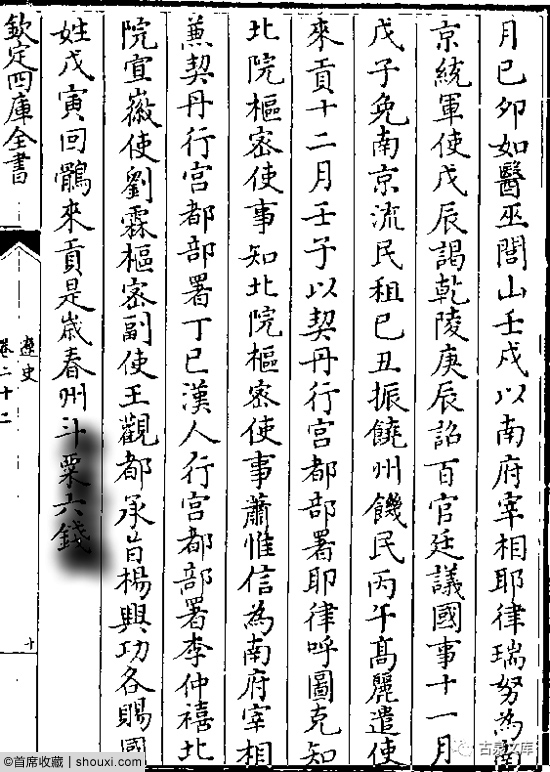 月己卯如醫巫閭山壬戌以南府宰相耶律瑞努為南
京統軍使戊辰謁乾陵庚辰詔百官廷議國事十一月
戊子免南京流民租己丑振饒州饑民丙午髙麗遣使
來貢十二月壬子以契丹行宫都部署耶律呼圖克知
北院樞密使事知北院樞密使事蕭惟信為南府宰相
兼契丹行宫都部署丁巳漢人行宫都部署李仲禧北
院宣徽使劉霖樞密副使王觀都承旨楊興功各賜國
姓戊寅回鶻來貢是歲春州斗粟六錢
欽定四庫全書
遼史
卷二十二
十
©首席收藏 | shouxi.com
古泉文库